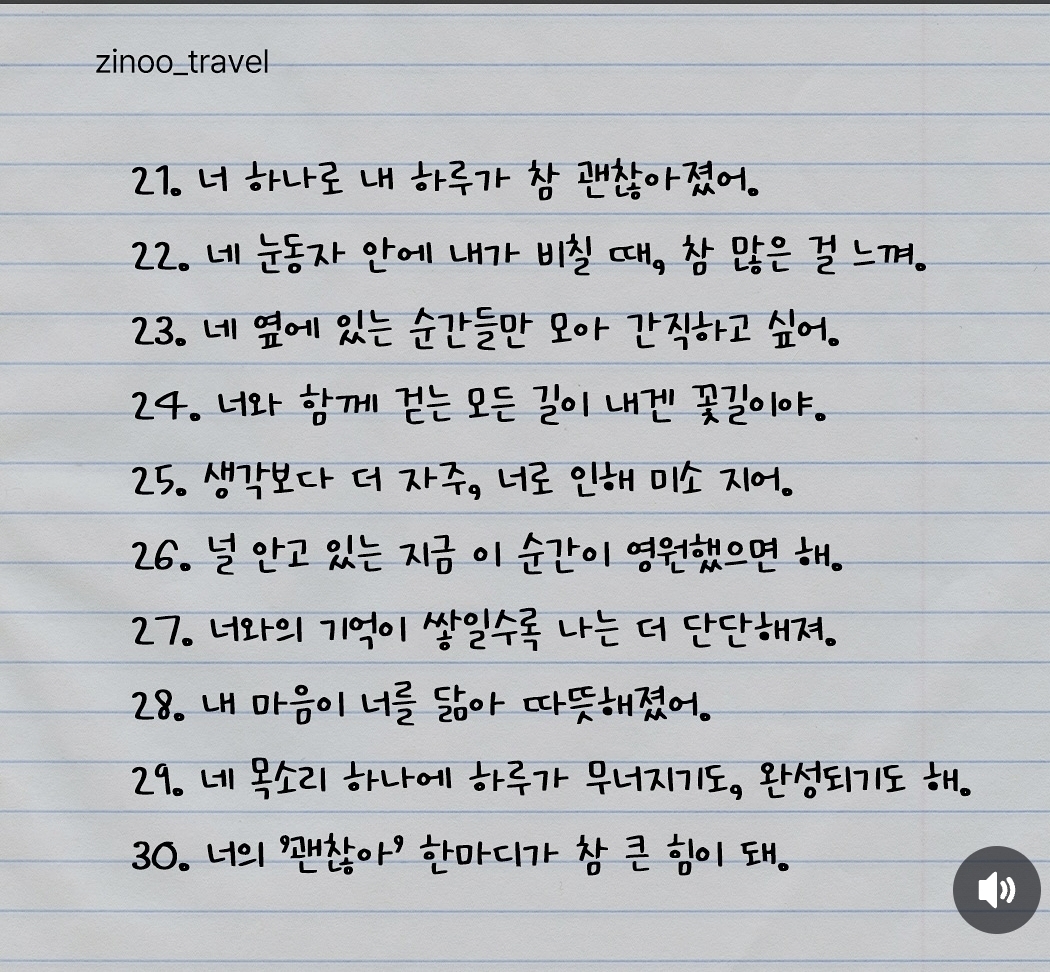 zinoo_travel
21. 너 하나로 내 하루가 참 괜찮아졌어.
22. 네 눈동자 안에 내가 비칠 때, 참 많은 걸 느껴.
23. 네 옆에 있는 순간들만 모아 간직하고 싶어.
24. 너와 함께 걷는 모든 길이 내겐 꽃길이야.
25. 생각보다 더 자주, 너로 인해 미소 지어.
26. 널 안고 있는 지금 이 순간이 영원했으면 해.
27. 너와의 기억이 쌓일수록 나는 더 단단해져.
28. 내 마음이 너를 닮아 따뜻해졌어.
29. 네 목소리 하나에 하루가 무너지기도, 완성되기도 해.
30. 너의 '괜찮아' 한마디가 참 큰 힘이 돼.